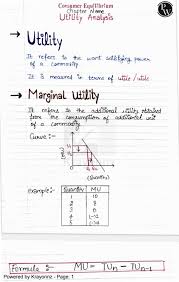 Consumer Equilibrium
Chapter Name
Utility Analysis
→ Utility
It refers to the want satisfying power
of a commodity
It is measured in terms of utils / utile
→ Marginal Utility
It refers to the additional utility attained
from the consumption of additional unit
of a commodity
Curve :-
MU
(Quantity)
Example :-
Quantity MU
1 10
2 8
3 0
4
5
Formula :- MU = TUn - TUn-1
Powered by Krayonnz - Page: 1